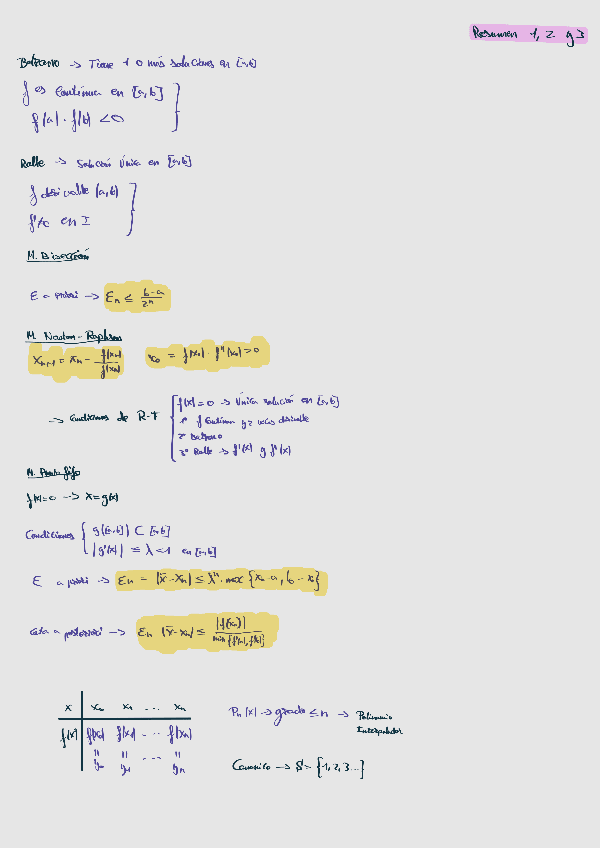 Resumen 1, 2 y 3
Bolzano -> Tiene 1 o más soluciones en [a,b]
f es continua en [a,b]
f(a) · f(b) < 0
Rolle -> Solución única en [a,b]
f derivable (a,b)
f'≠0 en I
M. Bisección
E a priori -> En ≤ b-a / 2^n
M. Newton-Raphson
Xn+1 = Xn - f(xn) / f(xn) x0 = f(x0) · f''(x0) > 0
-> Condiciones de
f(x) = 0 -> única solución en [a,b]
1º f continua y 2 veces derivable
2º Bolzano
3º Rolle -> f'(x) y f''(x)
M. Punto fijo
f(x)=0 -> x=g(x)
Condiciones { g([a,b]) ⊂ [a,b]
|g'(x)| ≤ λ < 1 en [a,b]
E a priori -> En = |x̄-xn| ≤ λ^n · max {x0-a, b-x0}
Cota a posteriori -> En |x̄-xn| ≤ |f(xn)| / min{f'(a), f'(b)}
x | x0 x1 ... xn
f(x) | f(x0) f(x1) ... f(xn)
" " "
y0 y1 ... yn
Pn(x) -> grado ≤ n -> Polinomio
Interpolador
Canónico -> S = {1, 2, 3...}